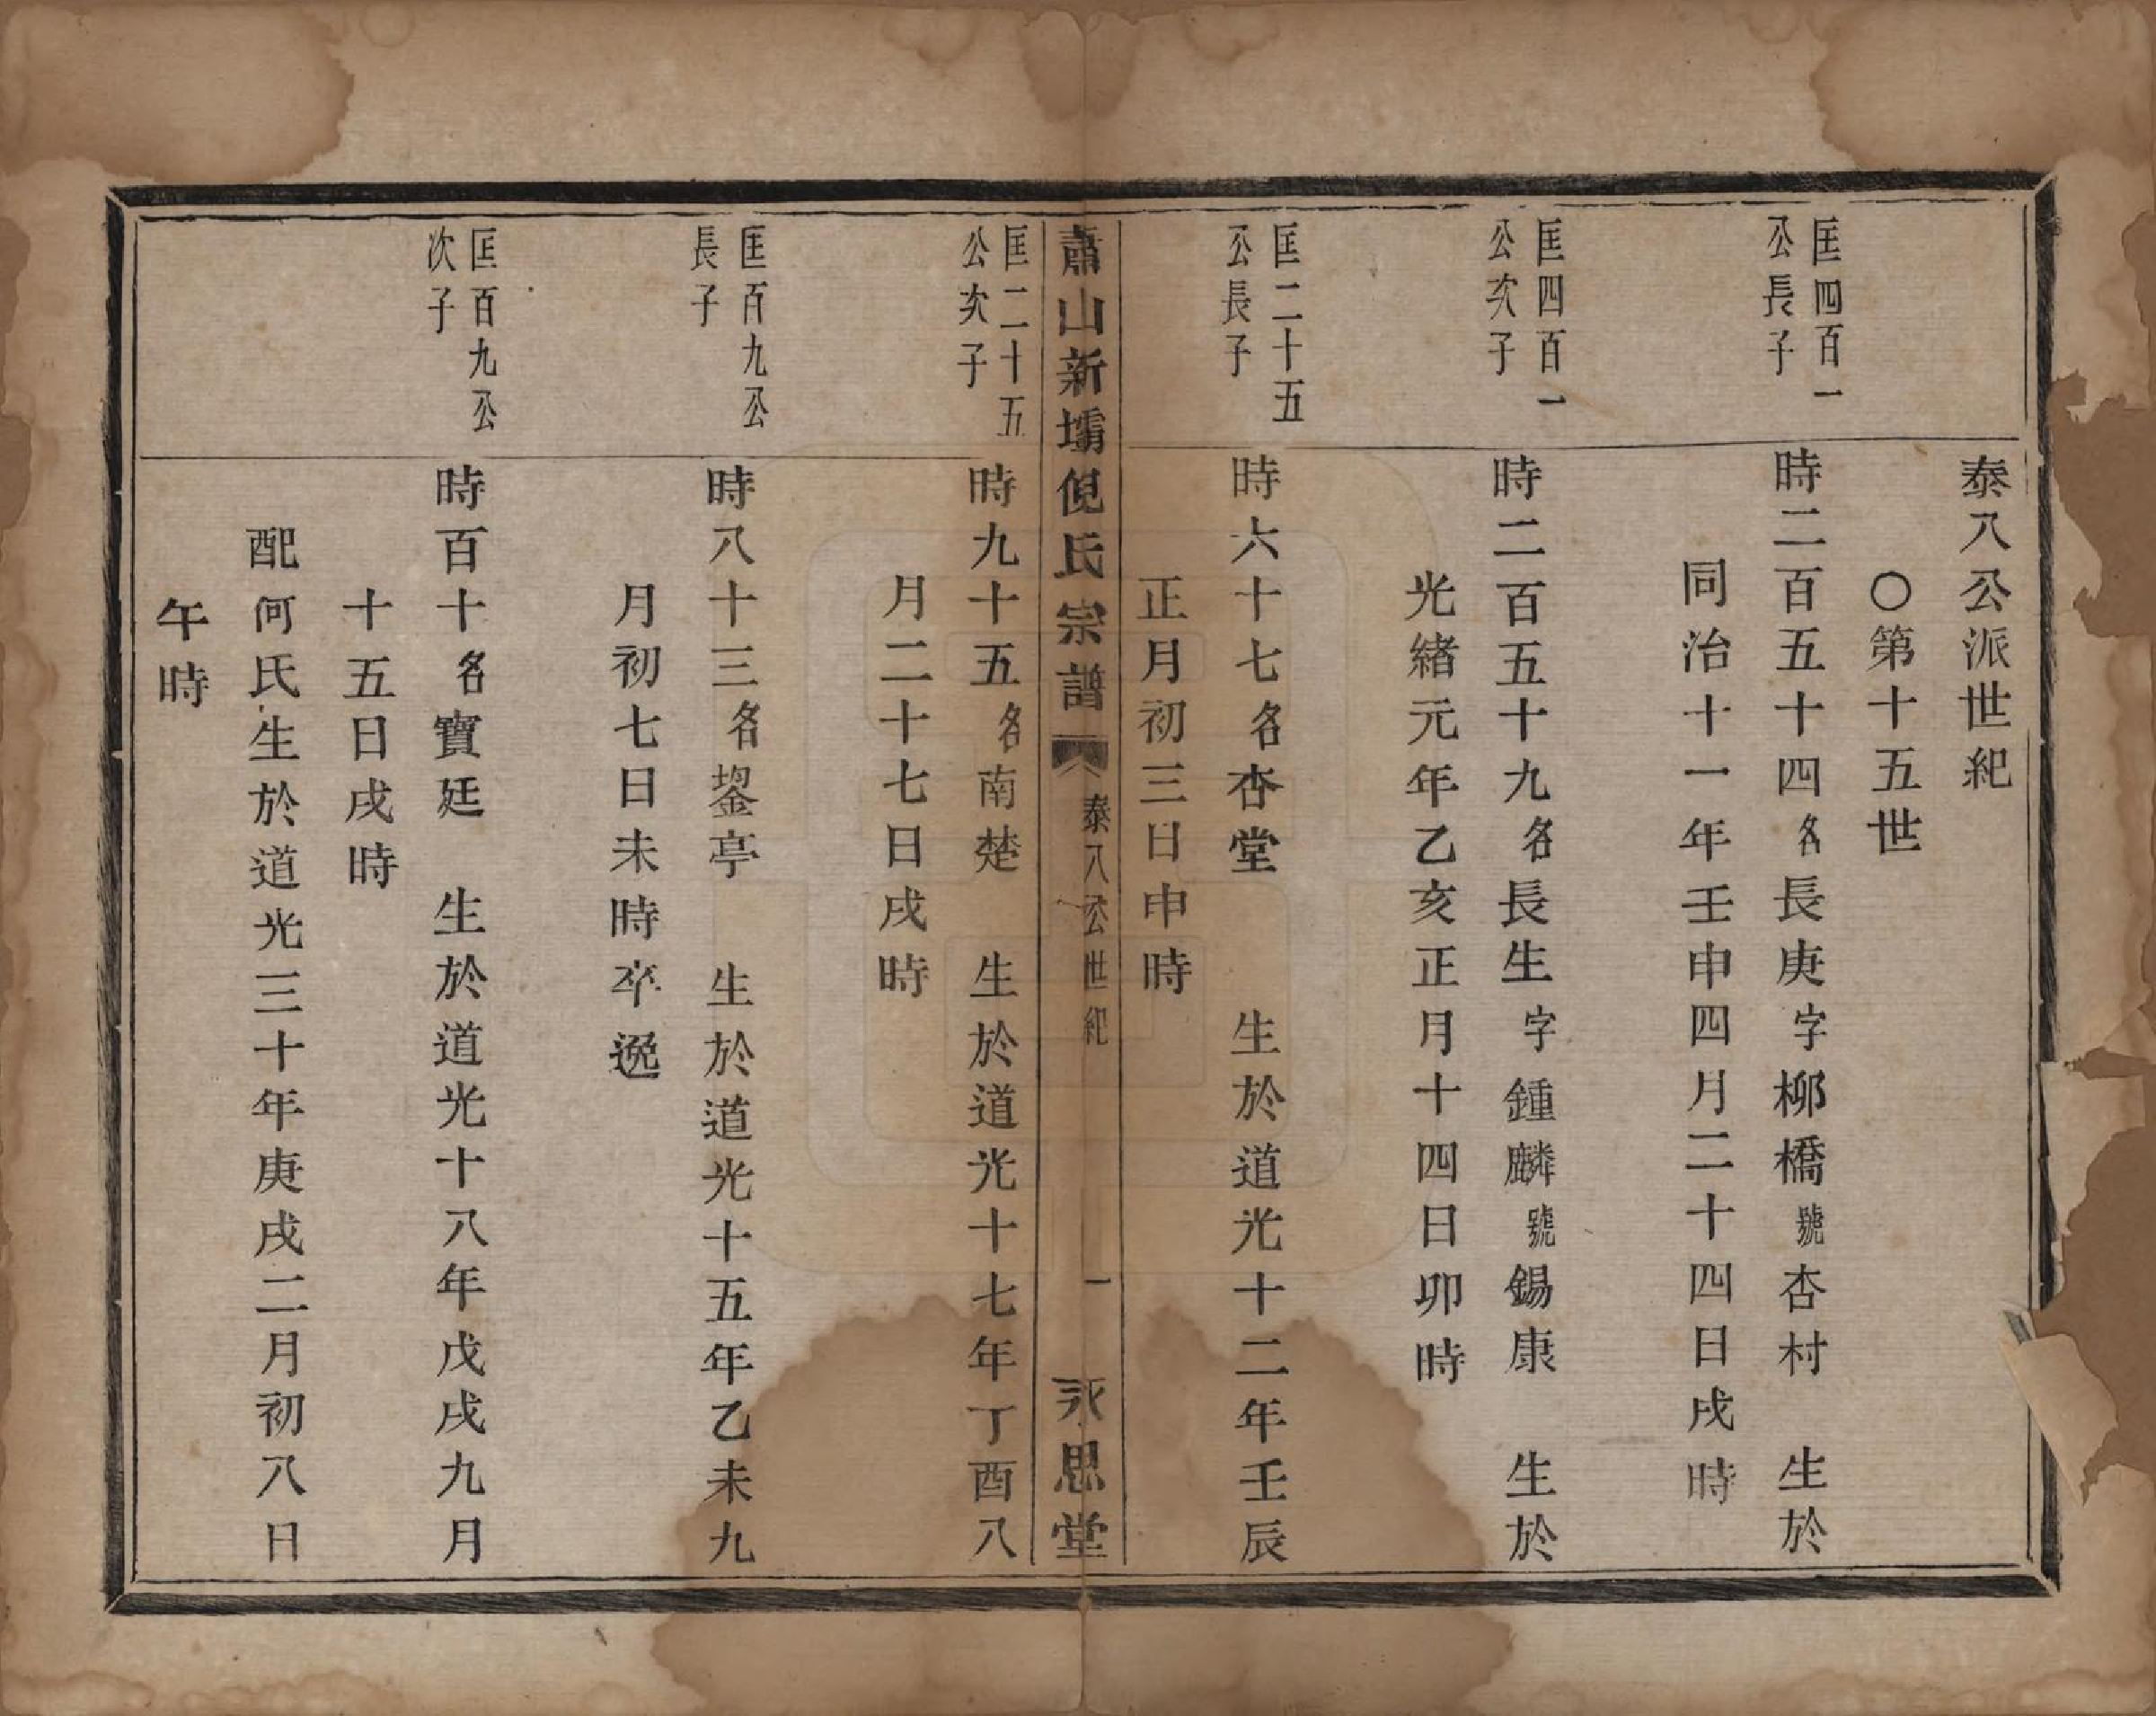 泰八公派世紀
○第十五世
匡四百一
公長子
時二百五十四名長庚字柳橋號杏村 生於
同治十一年壬申四月二十四日戌時
匡四百一
公次子
時二百五十九名長生字鍾麟號錫康 生於
光緒元年乙亥正月十四日卯時
匡二十五
公長子
時六十七名杏堂 生於道光十二年壬辰
正月初三日申時
蕭山新壩倪氏宗譜 泰八公世紀 一 永思堂
匡二十五
公次子
時九十五名南楚 生於道光十七年丁酉八
月二十七日戌時
匡百九公
長子
時八十三名鋆亭 生於道光十五年乙未九
月初七日未時卒逸
匡百九公
次子
時百十名寶廷 生於道光十八年戊戌九月
十五日戌時
配何氏生於道光三十年庚戌二月初八日
午時